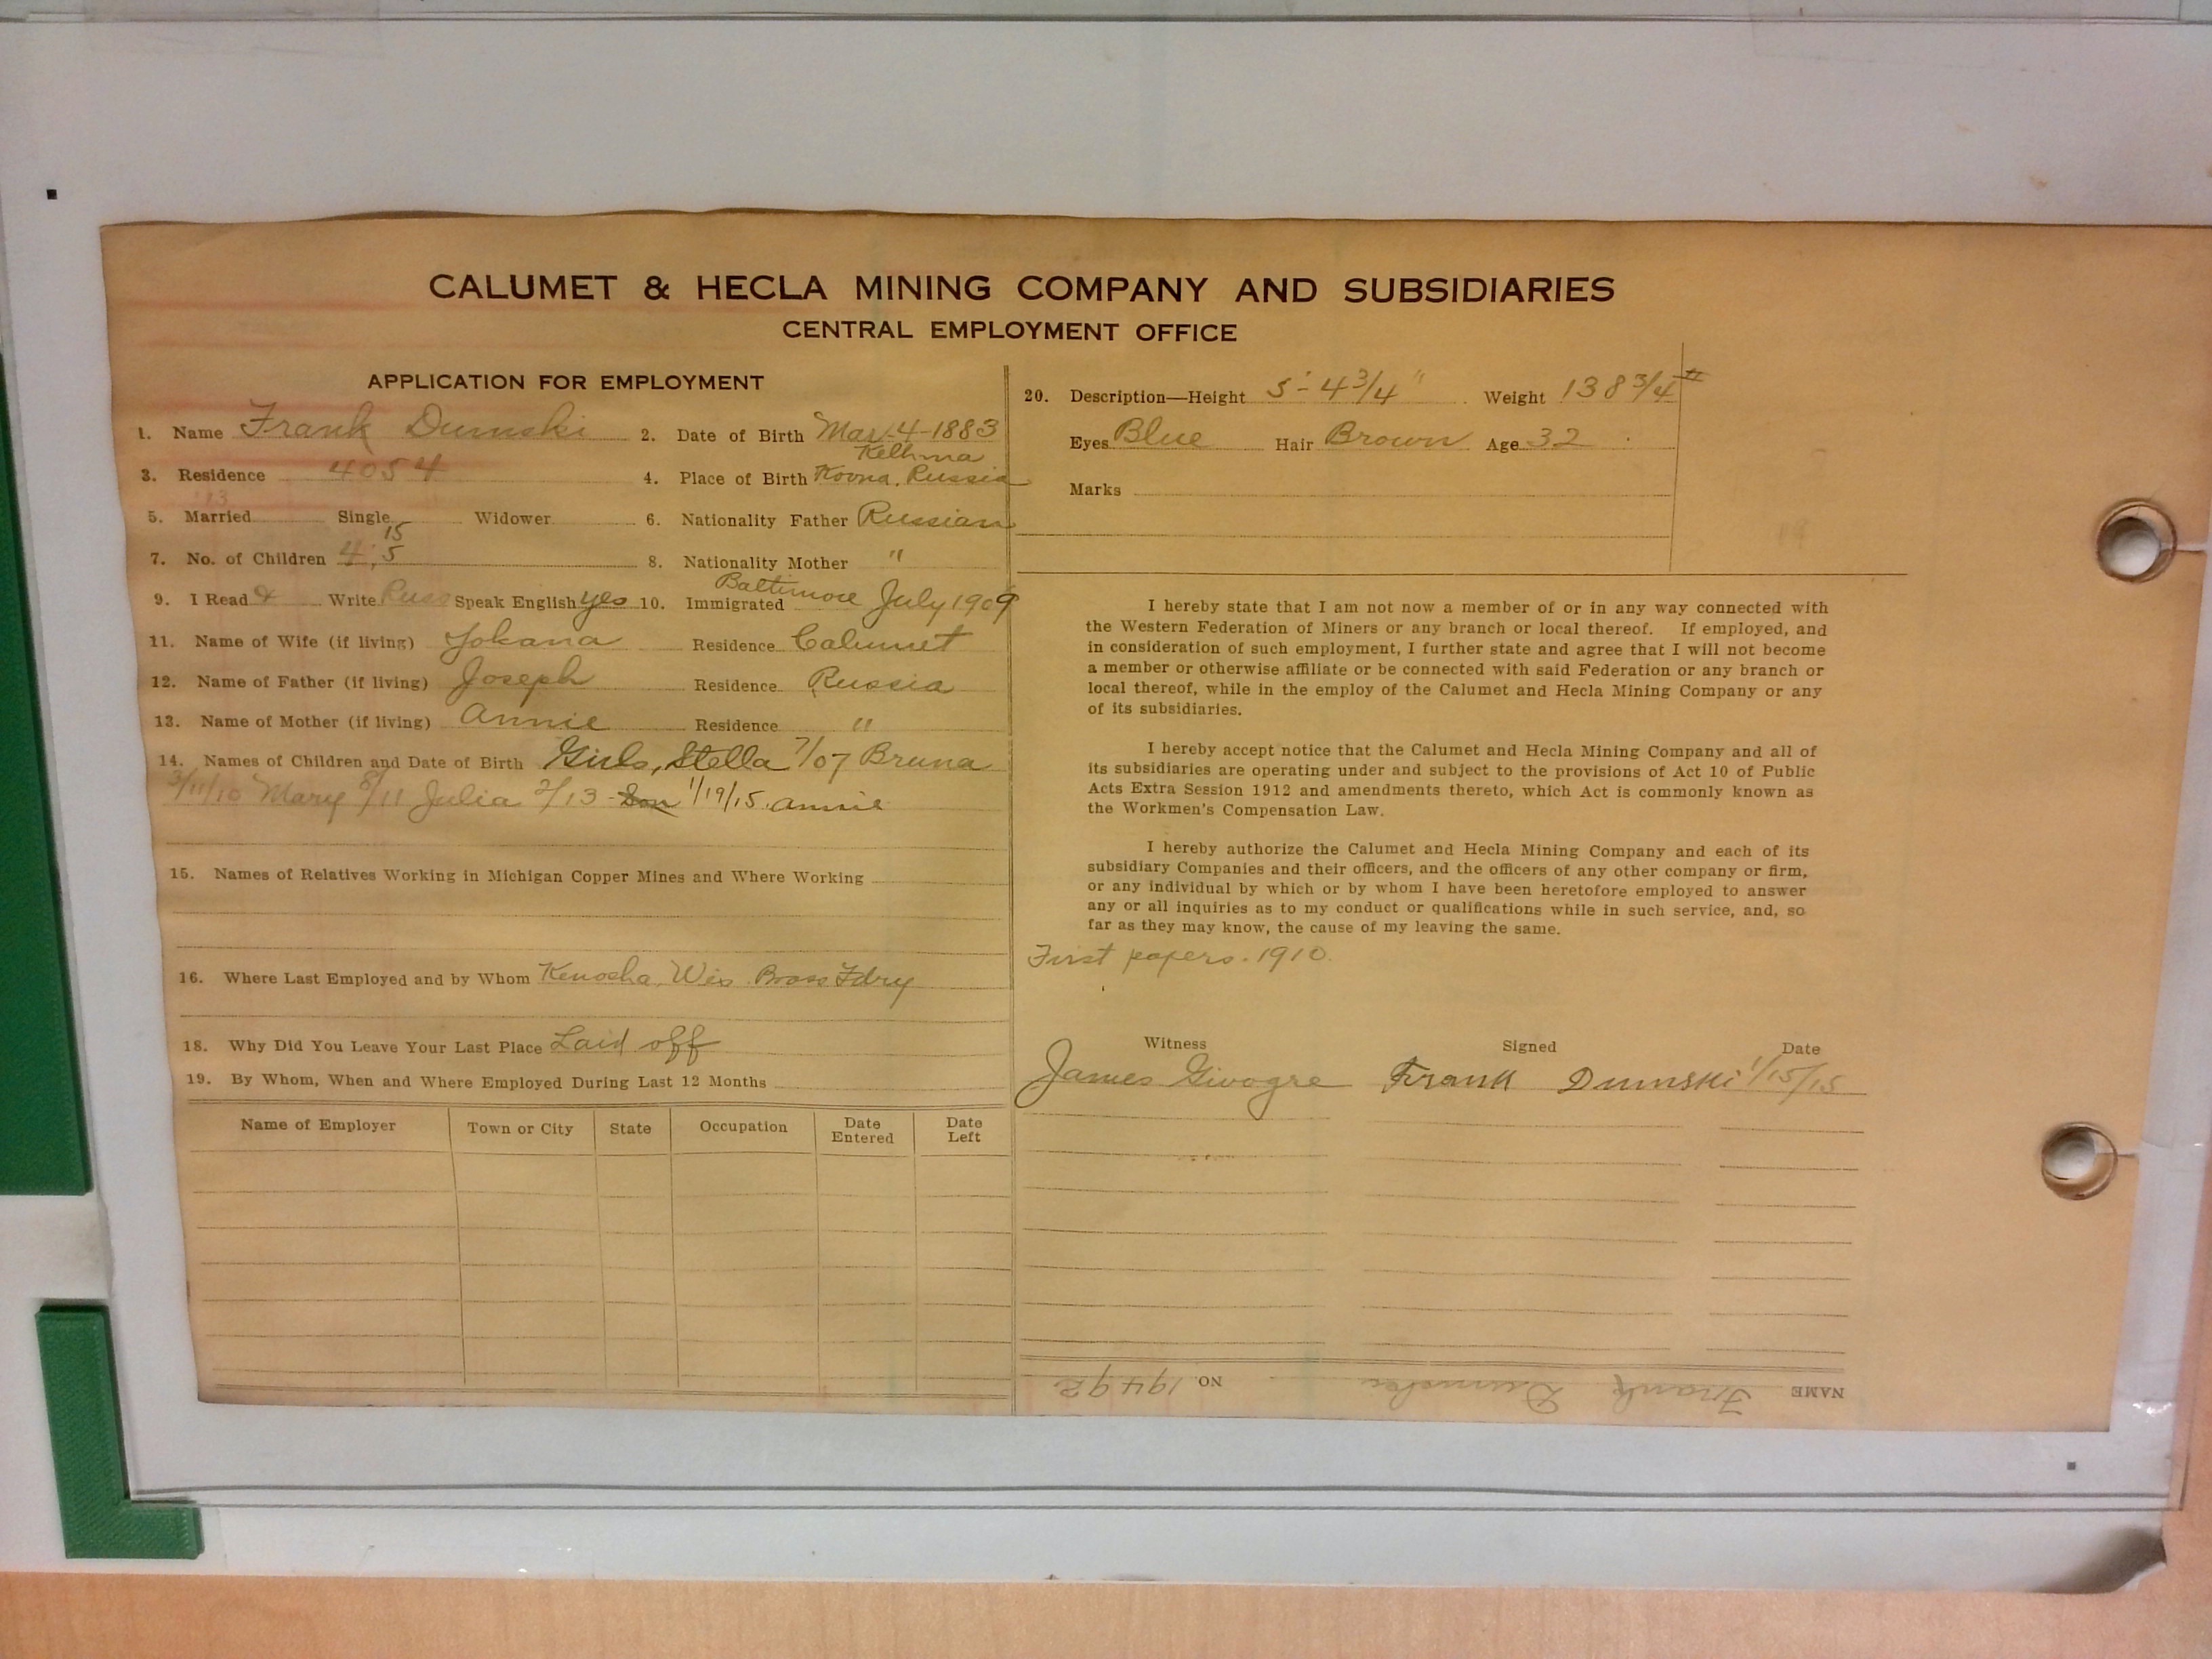 CALUMET & HECLA MINING COMPANY AND SUBSIDIARIES
CENTRAL EMPLOYMENT OFFICE
APPLICATION FOR EMPLOYMENT
1. Name Frank Dumski 2. Date of Birth Mar-4-1883
3. Residence 4054 4. Place of Birth Kovna, Russia
'13
5. Married Single Widower 6. Nationality Father Russian
15
7. No. of Children 4, 5 8. Nationality Mother "
9. I Read & Write Russ Speak English yes 10. Immigrated Baltimore July 1909
11. Name of Wife (if living) Johana Residence Calumet
12. Name of Father (if living) Joseph Residence Russia
13. Name of Mother (if living) Annie Residence "
14. Names of Children and Date of Birth Girls, Stella 7/07 Bruna
3/11/10 Mary 8/11 Julia 2/13 Son 1/19/15. Annie
15. Names of Relatives Working in Michigan Copper Mines and Where Working
16. Where Last Employed and by Whom Kenosha, Wis. Brass Fdry
18. Why Did You Leave Your Last Place Laid off
19. By Whom, When and Where Employed During Last 12 Months
Name of Employer Town or City State Occupation Date Entered Date Left
20. Description—Height 5'-4 3/4" Weight 138 3/4 #
Eyes Blue Hair Brown Age 32
Marks
I hereby state that I am not now a member of or in any way connected with
the Western Federation of Miners or any branch or local thereof. If employed, and
in consideration of such employment, I further state and agree that I will not become
a member or otherwise affiliate or be connected with said Federation or any branch or
local thereof, while in the employ of the Calumet and Hecla Mining Company or any
of its subsidiaries.
I hereby accept notice that the Calumet and Hecla Mining Company and all of
its subsidiaries are operating under and subject to the provisions of Act 10 of Public
Acts Extra Session 1912 and amendments thereto, which Act is commonly known as
the Workmen's Compensation Law.
I hereby authorize the Calumet and Hecla Mining Company and each of its
subsidiary Companies and their officers, and the officers of any other company or firm,
or any individual by which or by whom I have been heretofore employed to answer
any or all inquiries as to my conduct or qualifications while in such service, and, so
far as they may know, the cause of my leaving the same.
First papers. 1910.
Witness Signed Date
James Givogre Frank Dumski 1/15/15
NAME Frank Dumski NO. 19492